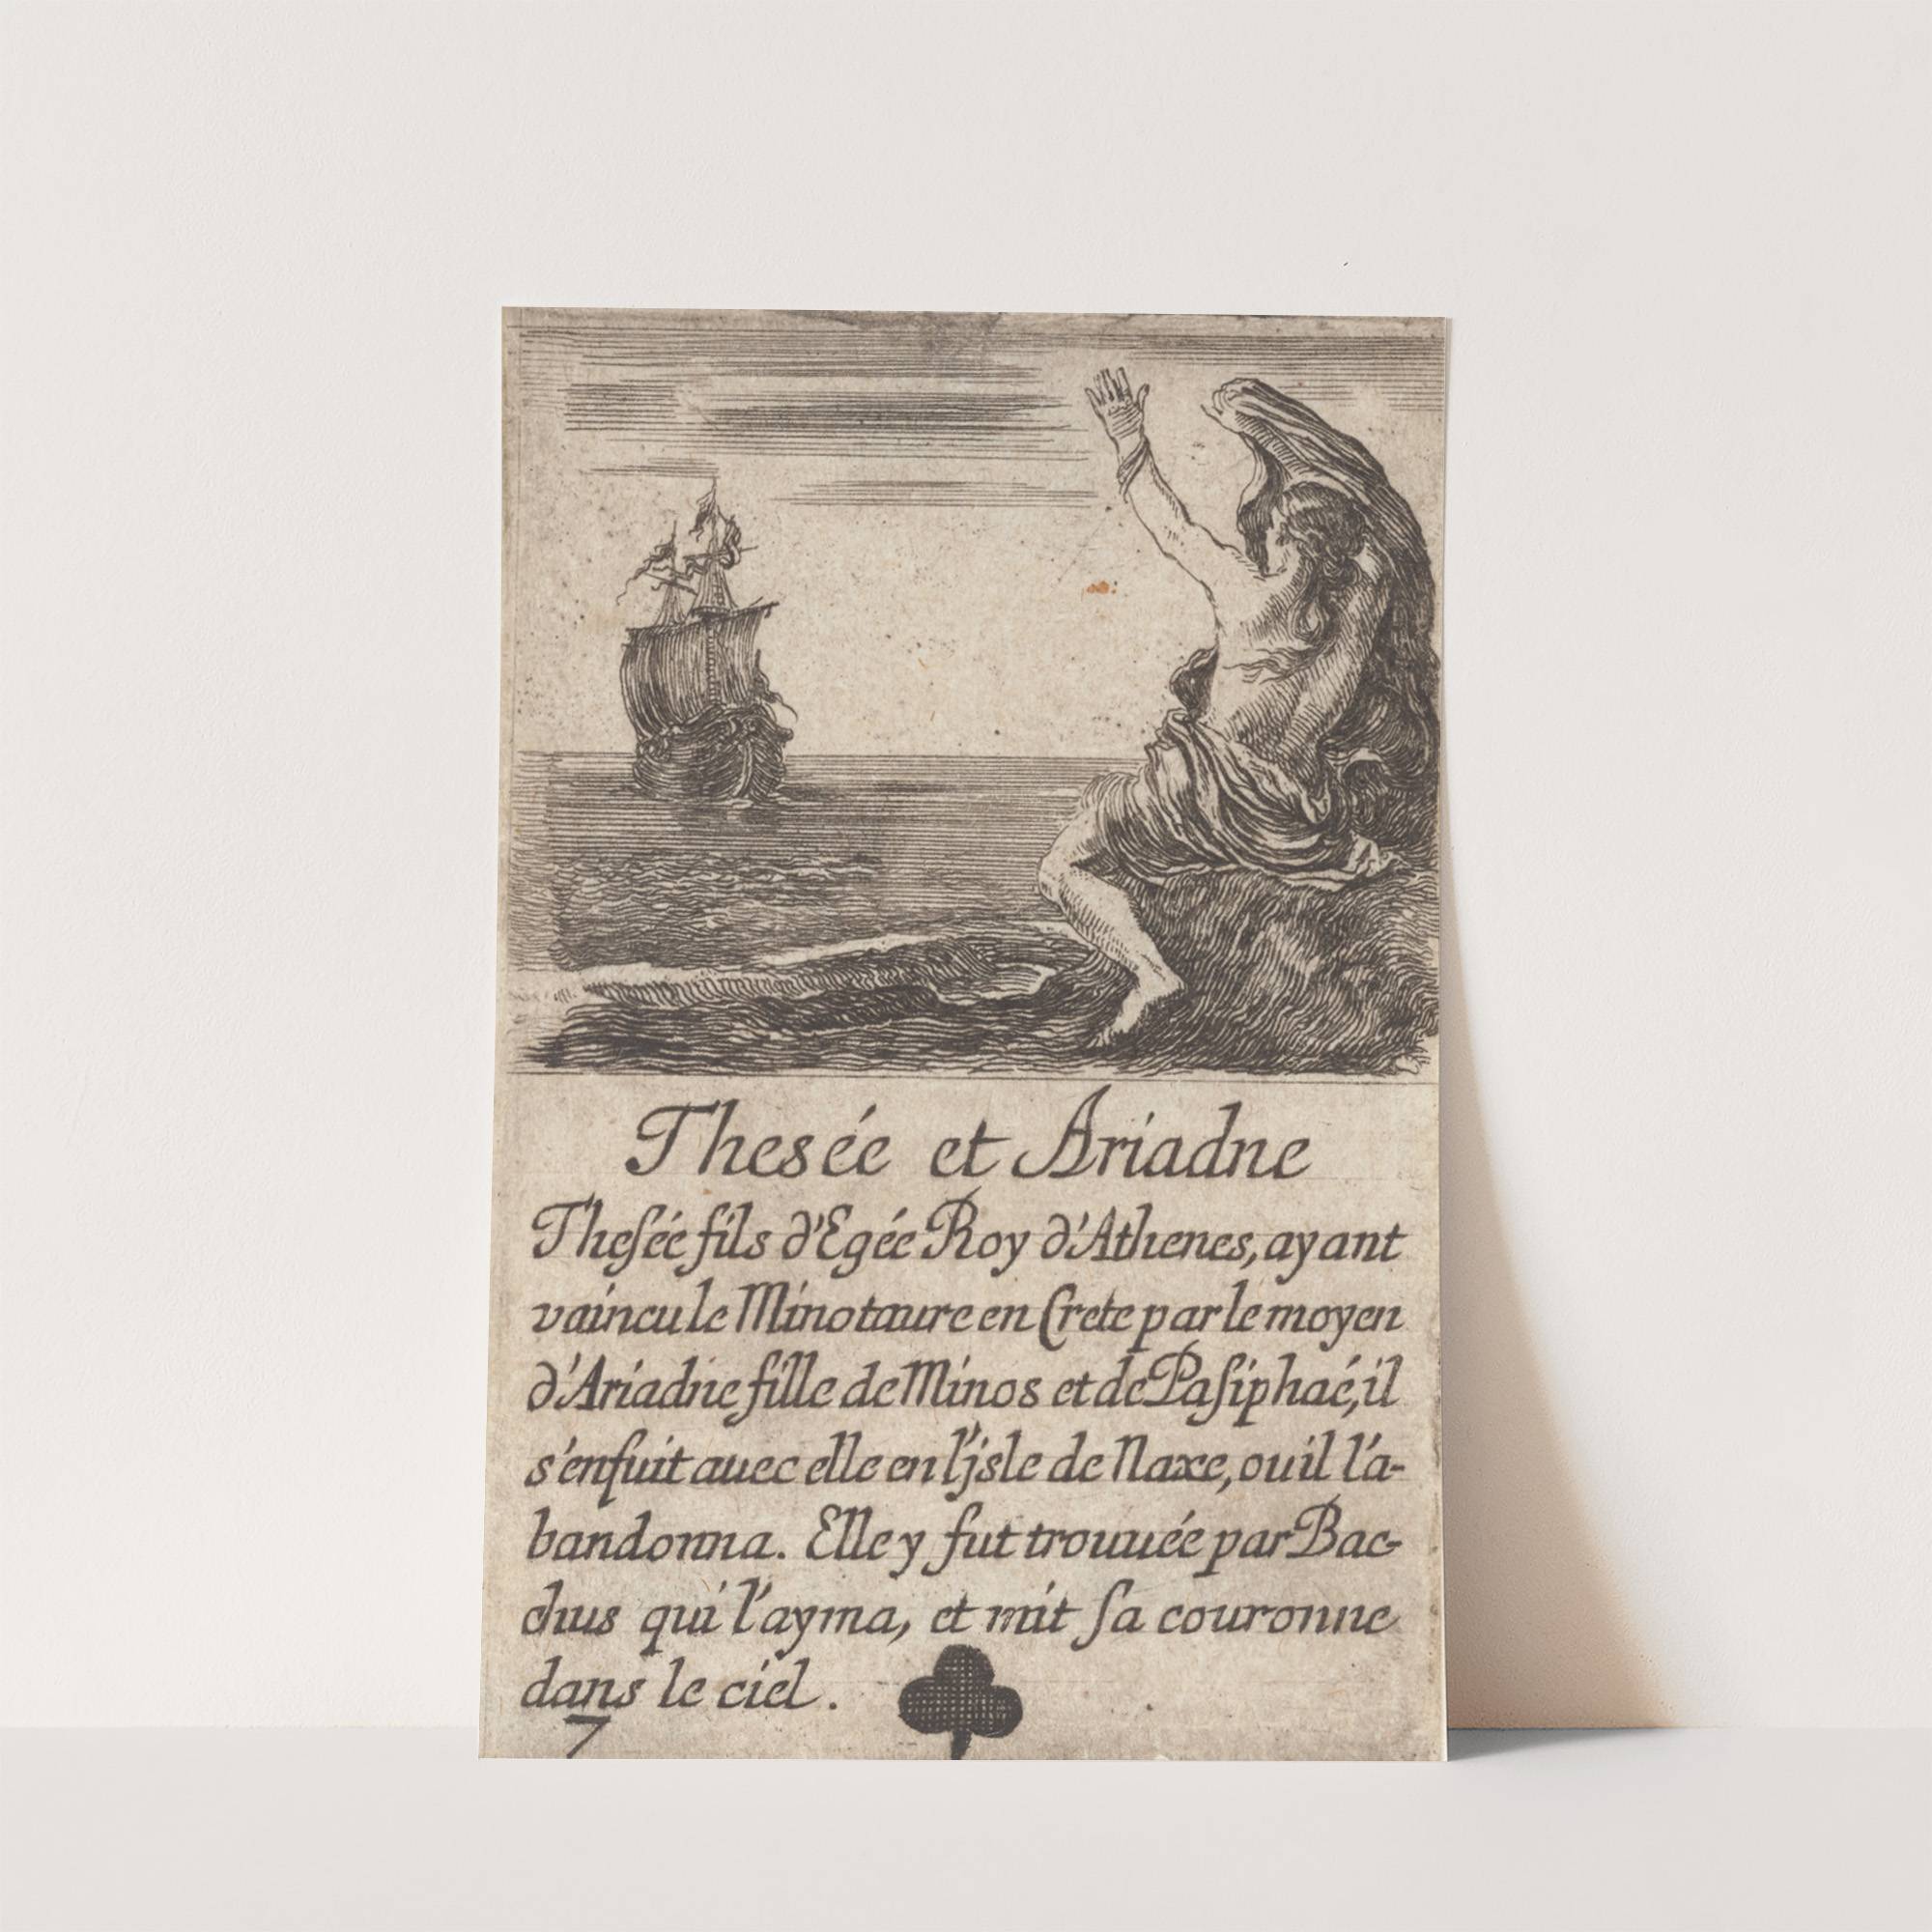 Thesée et Ariadne
Theſée fils d'Egée Roy d'Athenes, ayant
vaincu le Minotaure en Crete par le moyen
d'Ariadne fille de Minos et de Paſiphaé, il
s'enfuit auec elle en l'jsle de Naxe, ou il l'a-
bandonna. Elle y fut trouuée par Bac-
chus qui l'ayma, et mit ſa couronne
dans le ciel.
7